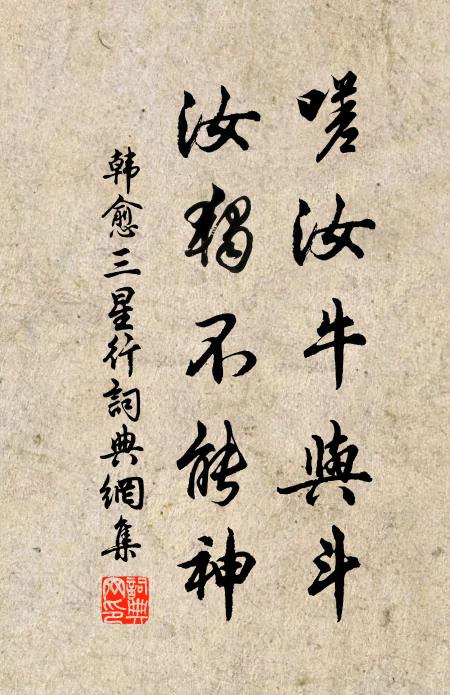 嗟汝牛與斗
汝獨不能神
韓愈三星行詞典網集
詞典
网印